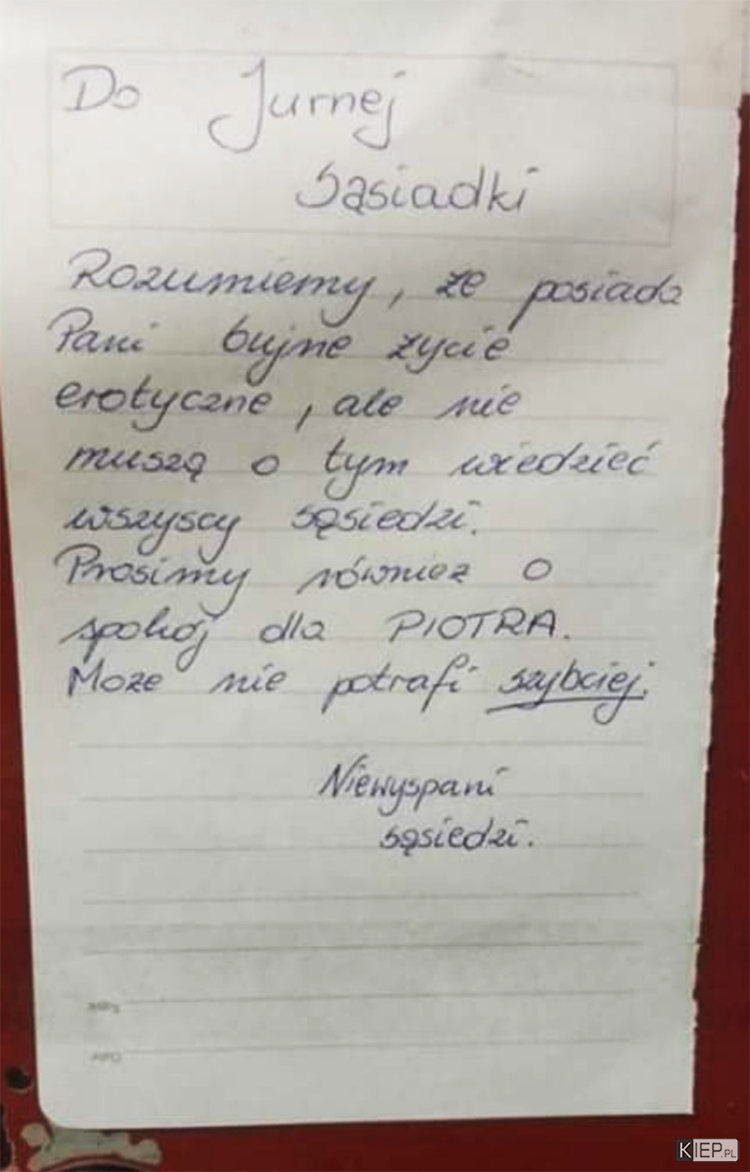 Do Jurnej
Sąsiadki
Rozumiemy, że posiada
Pani bujne życie
erotyczne, ale nie
muszą o tym wiedzieć
wszyscy sąsiedzi.
Prosimy również o
spokój dla PIOTRA.
Może nie potrafi szybciej.
Niewyspani
sąsiedzi.
KIEP.PL